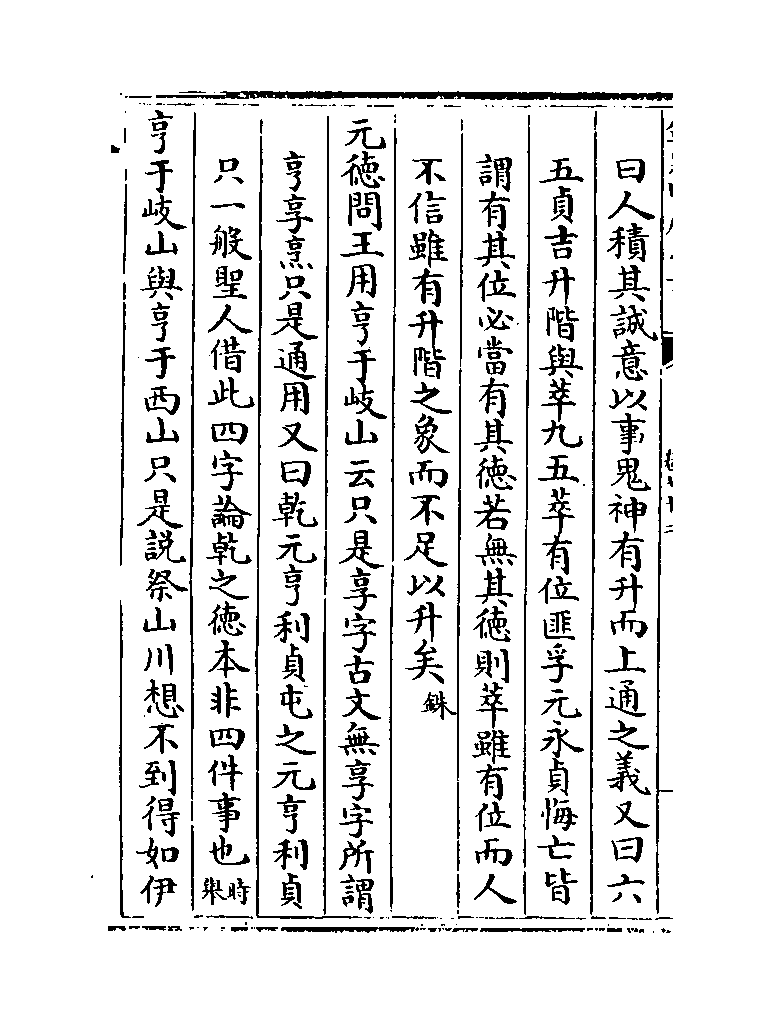 曰人積其誠意以事鬼神有升而上通之義又曰六
五貞吉升階與萃九五萃有位匪孚元永貞悔亡皆
謂有其位必當有其徳若無其徳則萃雖有位而人
不信雖有升階之象而不足以升矣銖
元徳問王用亨于岐山云只是享字古文無享字所謂
亨享烹只是通用又曰乾元亨利貞屯之元亨利貞
只一般聖人借此四字論乾之徳本非四件事也時舉
亨于岐山與亨于西山只是説祭山川想不到得如伊